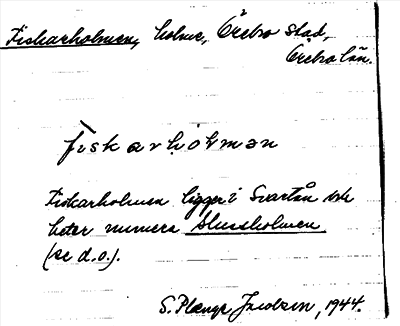 Fiskarholmen, holme, Örebro stad,
Örebro län.
fiskarhòlmən
Fiskarholmen ligger i Svartån och
heter numera Slussholmen
(se d.o.).
S. Jacobson, 1944.